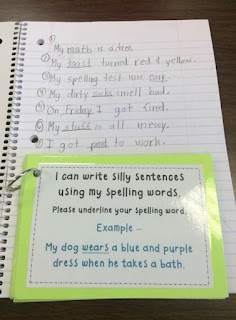 ①
My math is a dres.
② My toast turned red & yellow.
③ My spelling test was easy.
④ My dirty socks smell bad.
⑤ On Friday I got fired.
⑥ My stuff is all messy.
⑦ I got paid to work.
I can write silly sentences
using my spelling words.
Please underline your spelling word.
Example –
My dog wears a blue and purple
dress when he takes a bath.